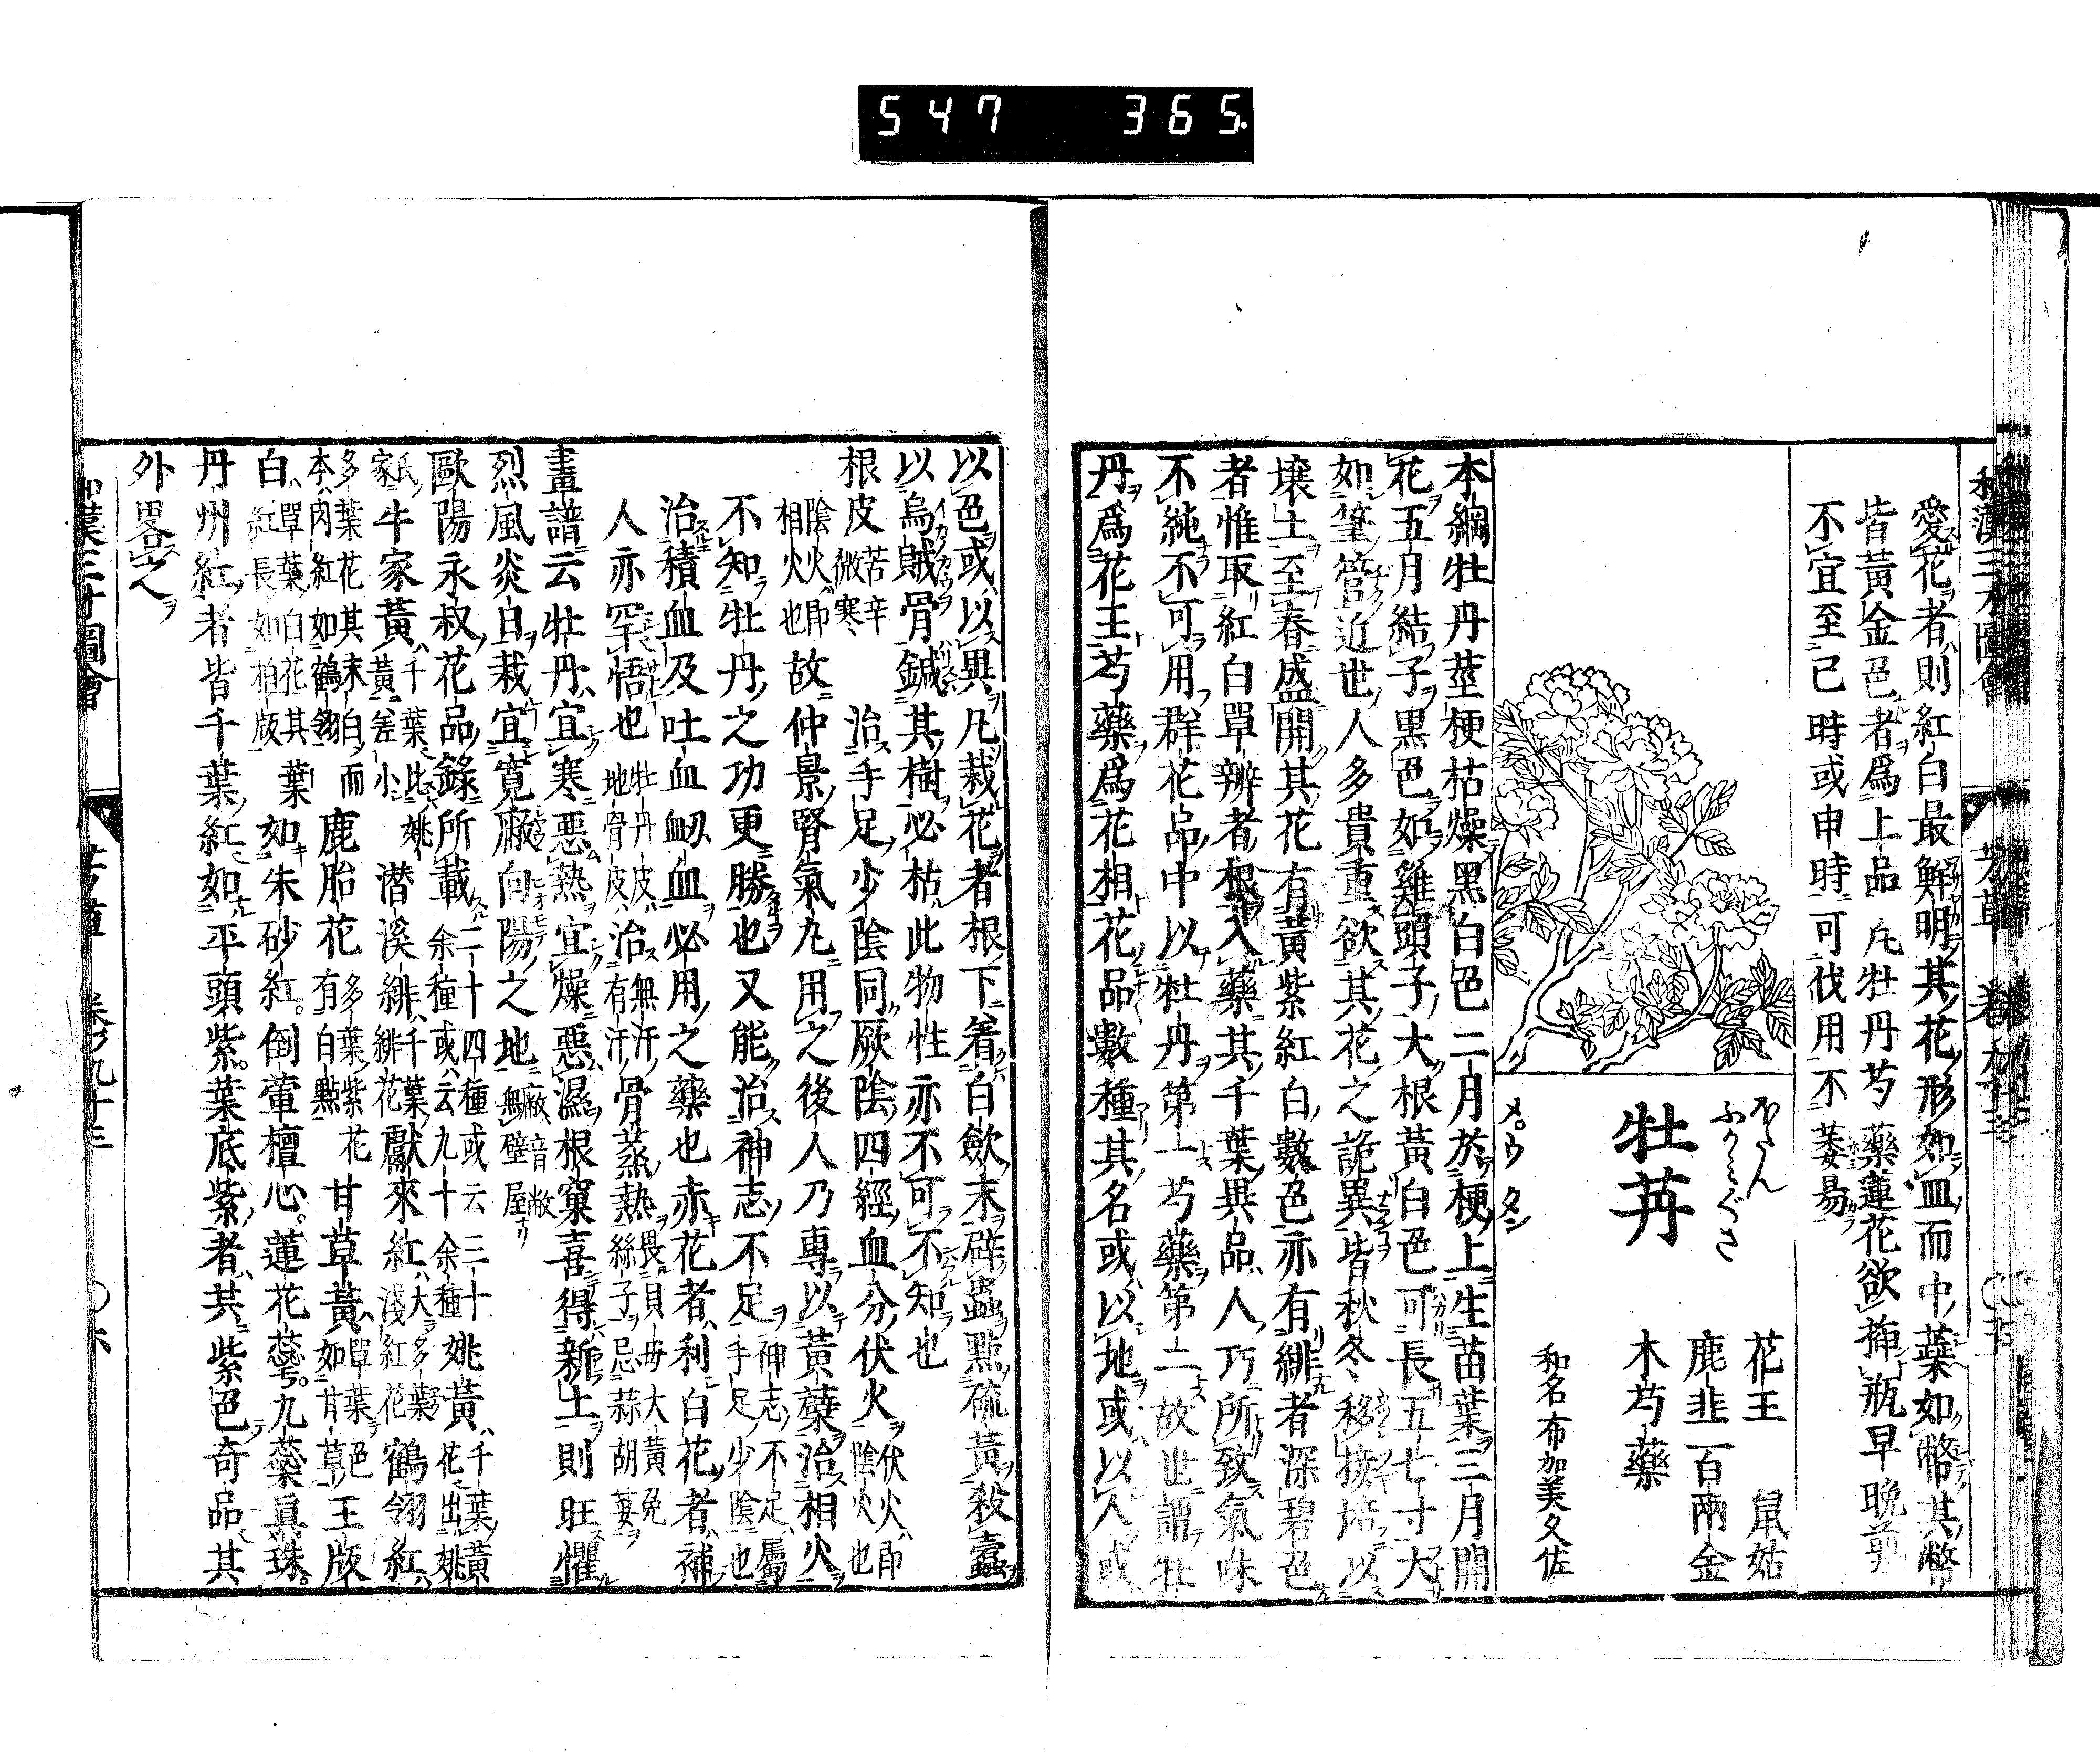 547 365
和漢三才圖會 芳草
愛花者則紅白最鮮明其花形如皿而中蘂如幣其幣
皆黃金色者爲上品凡牡丹芍藥蓮花欲揷瓶早晩剪
不宜至巳時或申時可伐用不萎易
牡丹
ぼたん
ふかみぐさ
メウタン
花王 鼠姑
鹿韭 百兩金
木芍藥
和名布加美久佐
本綱牡丹莖梗枯燥黑白色二月於梗上生苗葉三月開
花五月結子黑色如雞頭子大根黃白色可長五七寸大
如筆管近世人多貴重欲其花之詭異皆秋冬移接培以
壤土至春盛開其花有黃紫紅白數色亦有緋者深碧色
者惟取紅白單辨者根入藥其千葉異品人巧所致氣味
不純不可用群花品中以牡丹第一芍藥第二故世謂牡
丹爲花王芍藥爲花相花品數種其名或以地或以人或
以色或以異凡栽花者根下着白歛末辟蟲點硫黃殺蠹
以烏賊骨鍼其樹必枯此物性亦不可不知也
根皮 苦辛微寒 治手足少陰同厥陰四經血分伏火 伏火即陰火也
陰火即相火也 故仲景腎氣丸用之後人乃專以黃蘗治相火
不知牡丹之功更勝也又能治神志不足 神志不足屬手足少陰也
治積血及吐血衂血必用之藥也赤花者利白花者補
人亦罕悟也 牡丹皮治無汗骨蒸熱畏貝母大黃兔
地骨皮治有汗骨蒸熱 絲子忌蒜胡荽
畫譜云牡丹宜寒惡熱宜燥惡濕根窠喜得新土則旺懼
烈風炎白栽宜寬厰向陽之地 厰音敞無壁屋
歐陽永叔花品錄所載二十四種或云三十余種或云九十余種 姚黃 千葉黃花出姚
氏家 牛家黃 千葉比姚黃差小 潜溪緋 千葉緋花 獻來紅 大多葉淺紅花 鶴翎紅
多葉花其末白而本肉紅如鶴翎 鹿胎花 多葉紫花有白點 甘草黃 單葉色如甘草 玉版
白 單葉白花其葉紅長如柏版 如朱砂紅。倒暈檀心。蓮花蕊萼。九蘂眞珠。
丹州紅者皆千葉紅如平頭紫。葉底紫者共紫色奇品其
外畧之
和漢三才圖會 芳草 卷之九十三 〇六